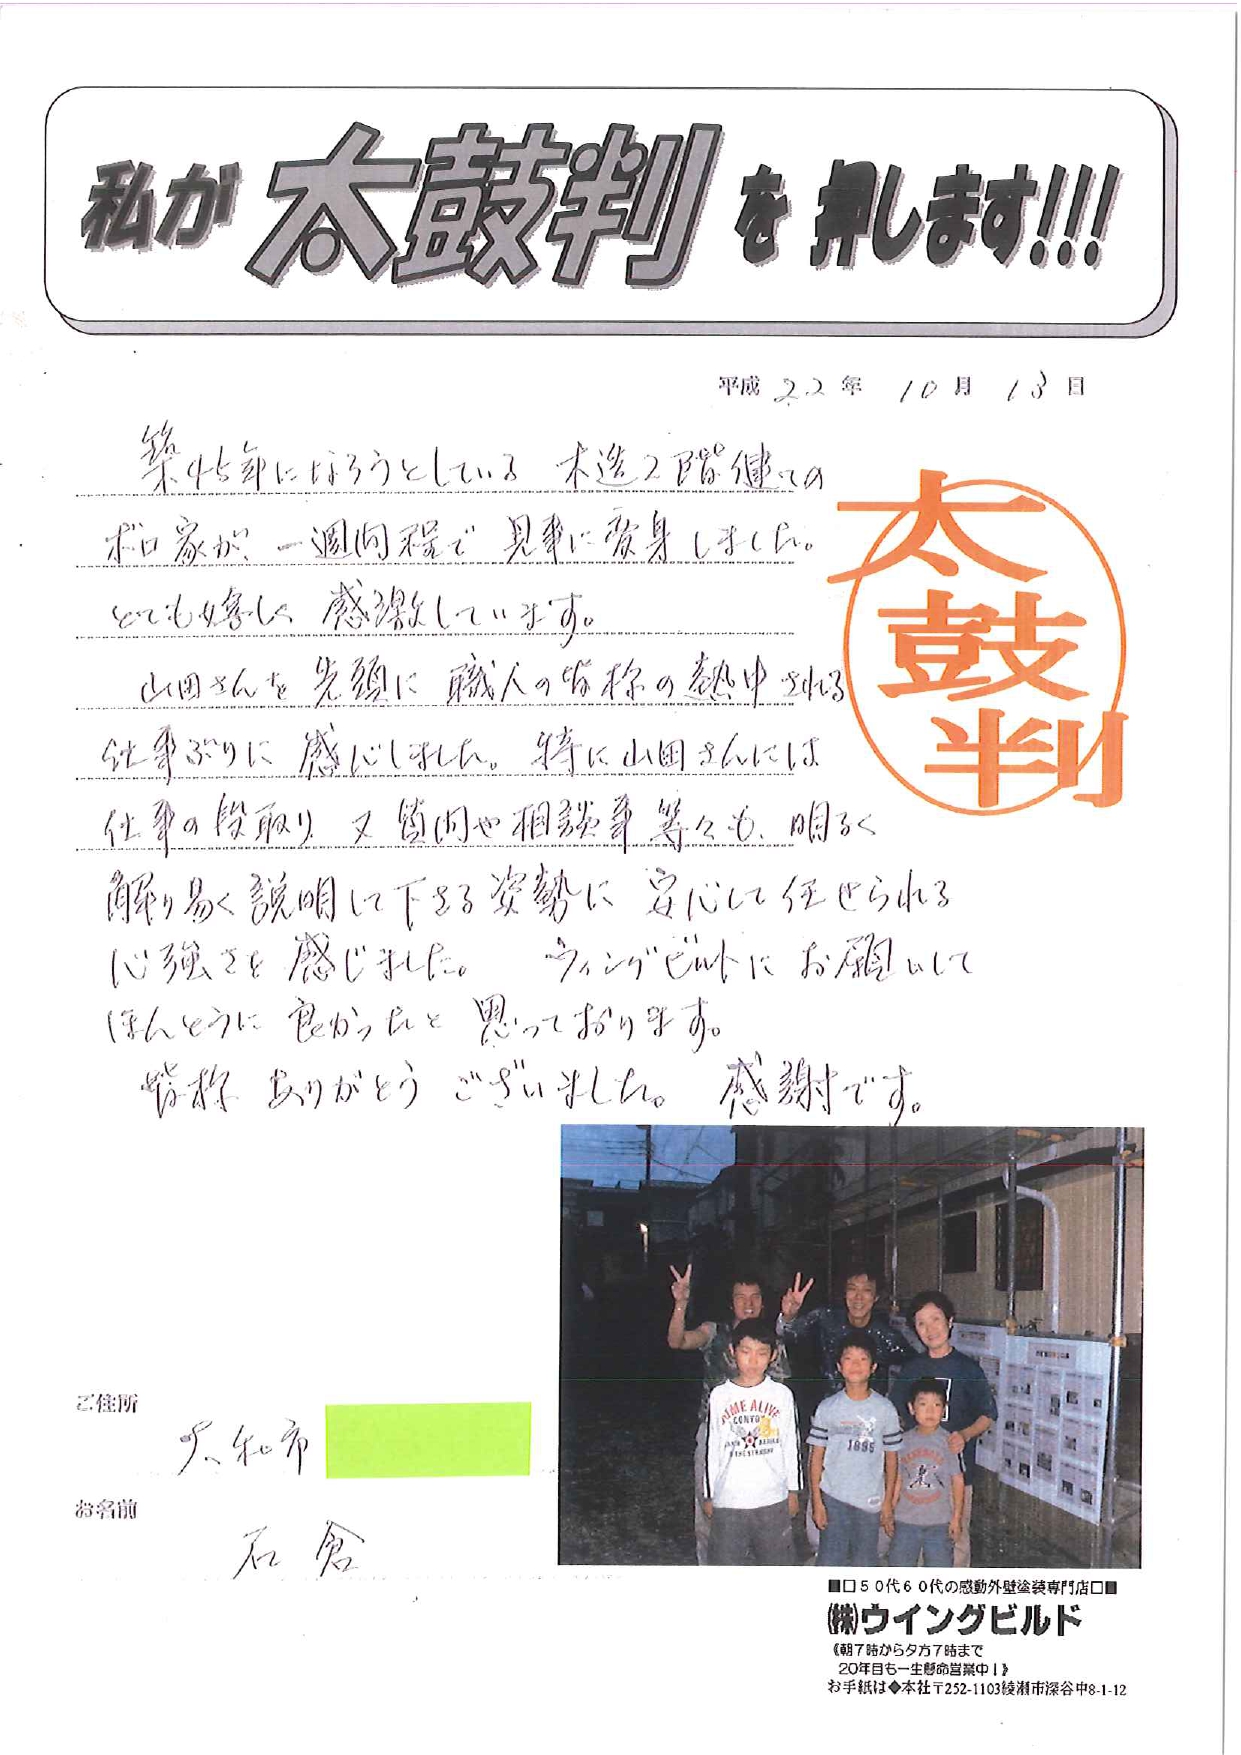 私が太鼓判を押します!!!
平成22年10月13日
築45年になろうとしている 木造2階建ての
ボロ家が、一週間程で見事に変身しました。
とても嬉しく感激しています。
山田さんを先頭に職人の皆様の熱中される
仕事ぶりに感心しました。特に山田さんには
仕事の段取り 又質問や相談事等々も、明るく
解り易く説明して下さる姿勢に安心して任せられる
心強さを感じました。 ウィングビルトにお願いして
ほんとうに良かったと思っております。
皆様ありがとうございました。 感謝です。
太鼓判
ご住所
大和市
お名前
石倉
TIME ALIVE
CONVOY
1895
■□50代60代の感動外壁塗装専門店□■
(株)ウイングビルド
《朝7時から夕方7時まで
20年目も一生懸命営業中!》
お手紙は◆本社〒252-1103綾瀬市深谷中8-1-12